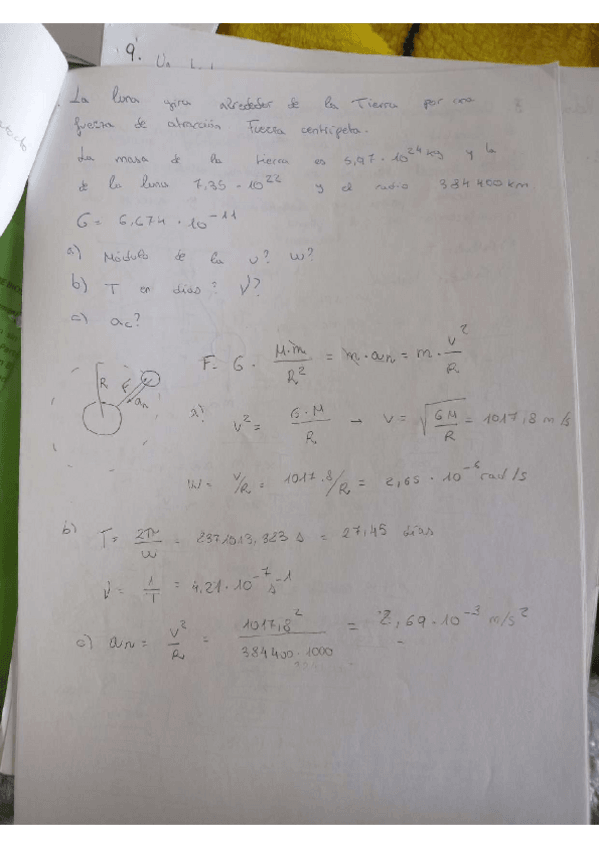 9.
La luna gira alrededor de la Tierra por una
fuerza de atracción Fuerza centripeta.
La masa de la tierra es 5,97 · 10^24 kg y la
de la luna 7,35 · 10^22 y el radio 384400 km
G = 6,674 · 10^-11
a) Módulo de la v? w?
b) T en días? ν?
c) ac?
F = G · M·m/R^2 = m·an = m · v^2/R
R F an
a) v^2 = G·M/R → v = √(GM/R) = 1017,8 m/s
w = v/R = 1017.8/R = 2,65 · 10^-6 rad/s
b) T = 2π/w = 2371013,323 s = 27,45 días
ν = 1/T = 4,21·10^-7 s^-1
c) an = v^2/R = 1017,8^2/384400·1000 = 2,69·10^-3 m/s^2